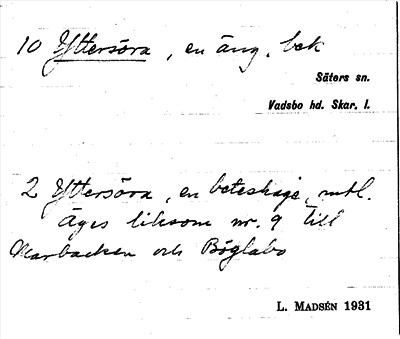 10 Yttersöra, en äng, bek
Säters sn.
Vadsbo hd. Skar. l.
2 Yttersöra, en beteshage, mtl.
äges liksom nr. 9 till
Marbacken och Böglabo
L. MADSÉN 1931